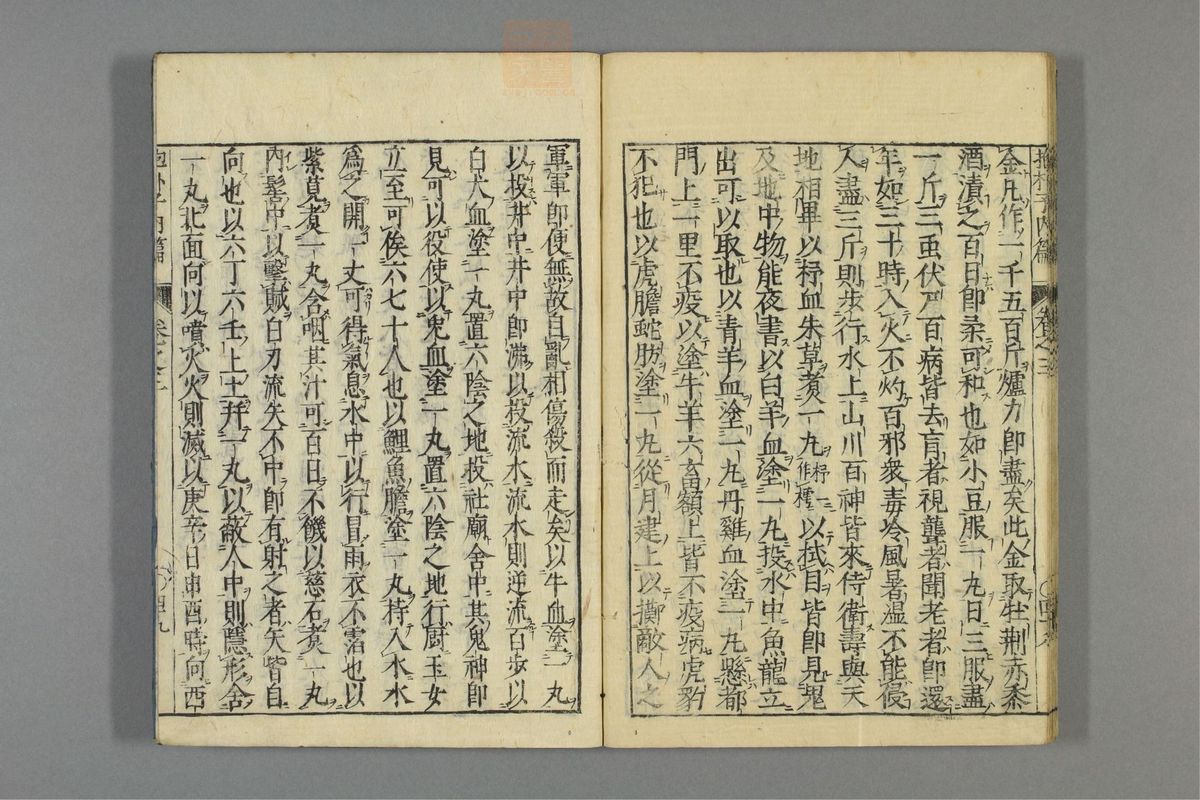 抱朴子內篇 卷之三
金凡作一千五百斤爐力即盡矣此金取牡荆赤黍
酒漬之百日即柔可和也如小豆服一丸日三服盡
一斤三虫伏尸百病皆去盲者視聾者聞老者即還
年如三十時入火不灼百邪衆毒冷風暑濕不能侵
人盡三斤則步行水上山川百神皆來侍衛壽與天
地相畢以杼血朱草煮一丸杼一作樗以拭目皆即見鬼
及地中物能夜書以白羊血塗一丸投水中魚龍立
出可以取也以青羊血塗一丸丹雞血塗一丸懸都
門上一里不疫以塗牛羊六畜額上皆不疫病虎豹
不犯也以虎膽蛇肪塗一丸從月建上以擲敵人之
軍軍即使無故自亂相傷殺而走矣以牛血塗一丸
以投井中井中即沸以投流水流水則逆流百步以
白犬血塗一丸置六陰之地投社廟舍中其鬼神即
見可以役使以兔血塗一丸置六陰之地行厨玉女
立至可俟六七十人也以鯉魚膽塗一丸持入水水
爲之開一丈可得氣息水中以行冒雨衣不霑也以
紫莧煮一丸含咽其汁可百日不饑以慈石煮一丸
內髻中以擊賊白刃流矢不中即有射之者矢皆自
向也以六丁六壬上土并一丸以蔽人中則隱形含
一丸北面向以噴火火則滅以庚辛日申酉時向西
抱朴子內篇 卷之三 〇四九